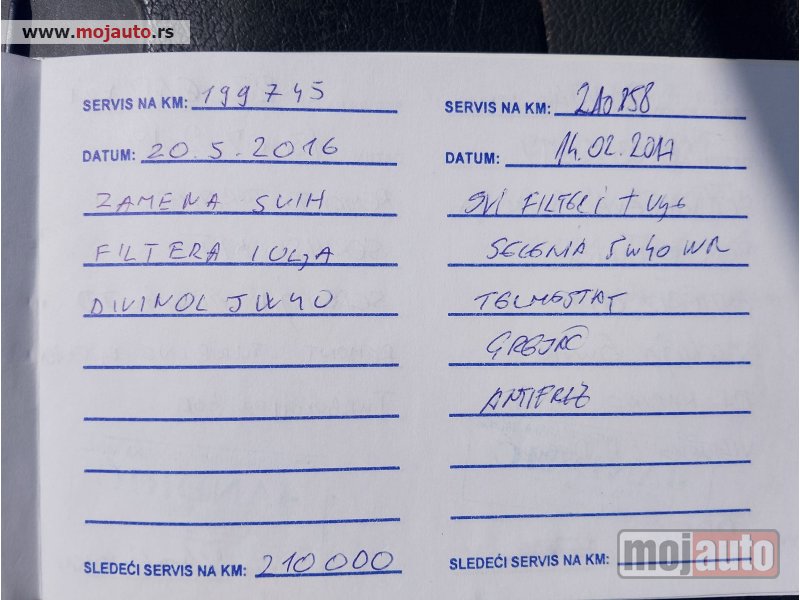 www.mojauto.rs
SERVIS NA KM: 199745
DATUM: 20.5.2016
ZAMENA SVIH
FILTERA I ULJA
DIVINOL 5W40
SLEDEĆI SERVIS NA KM: 210000
SERVIS NA KM: 210858
DATUM: 14.02.2017
SVI FILTERI + Ulje
SELENIA 5W40 WR
TERMOSTAT
GREJAČ
ANTIFRIZ
SLEDEĆI SERVIS NA KM:
mojauto